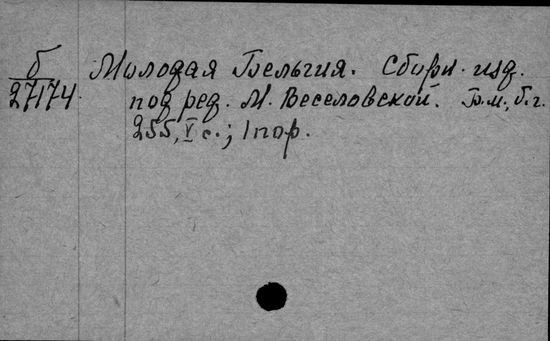 б Молодая Бельгия. Сборн. изд.
27174 под ред. М. Веселовской. Б.м., б.г.
255, V с.; 1 пор.